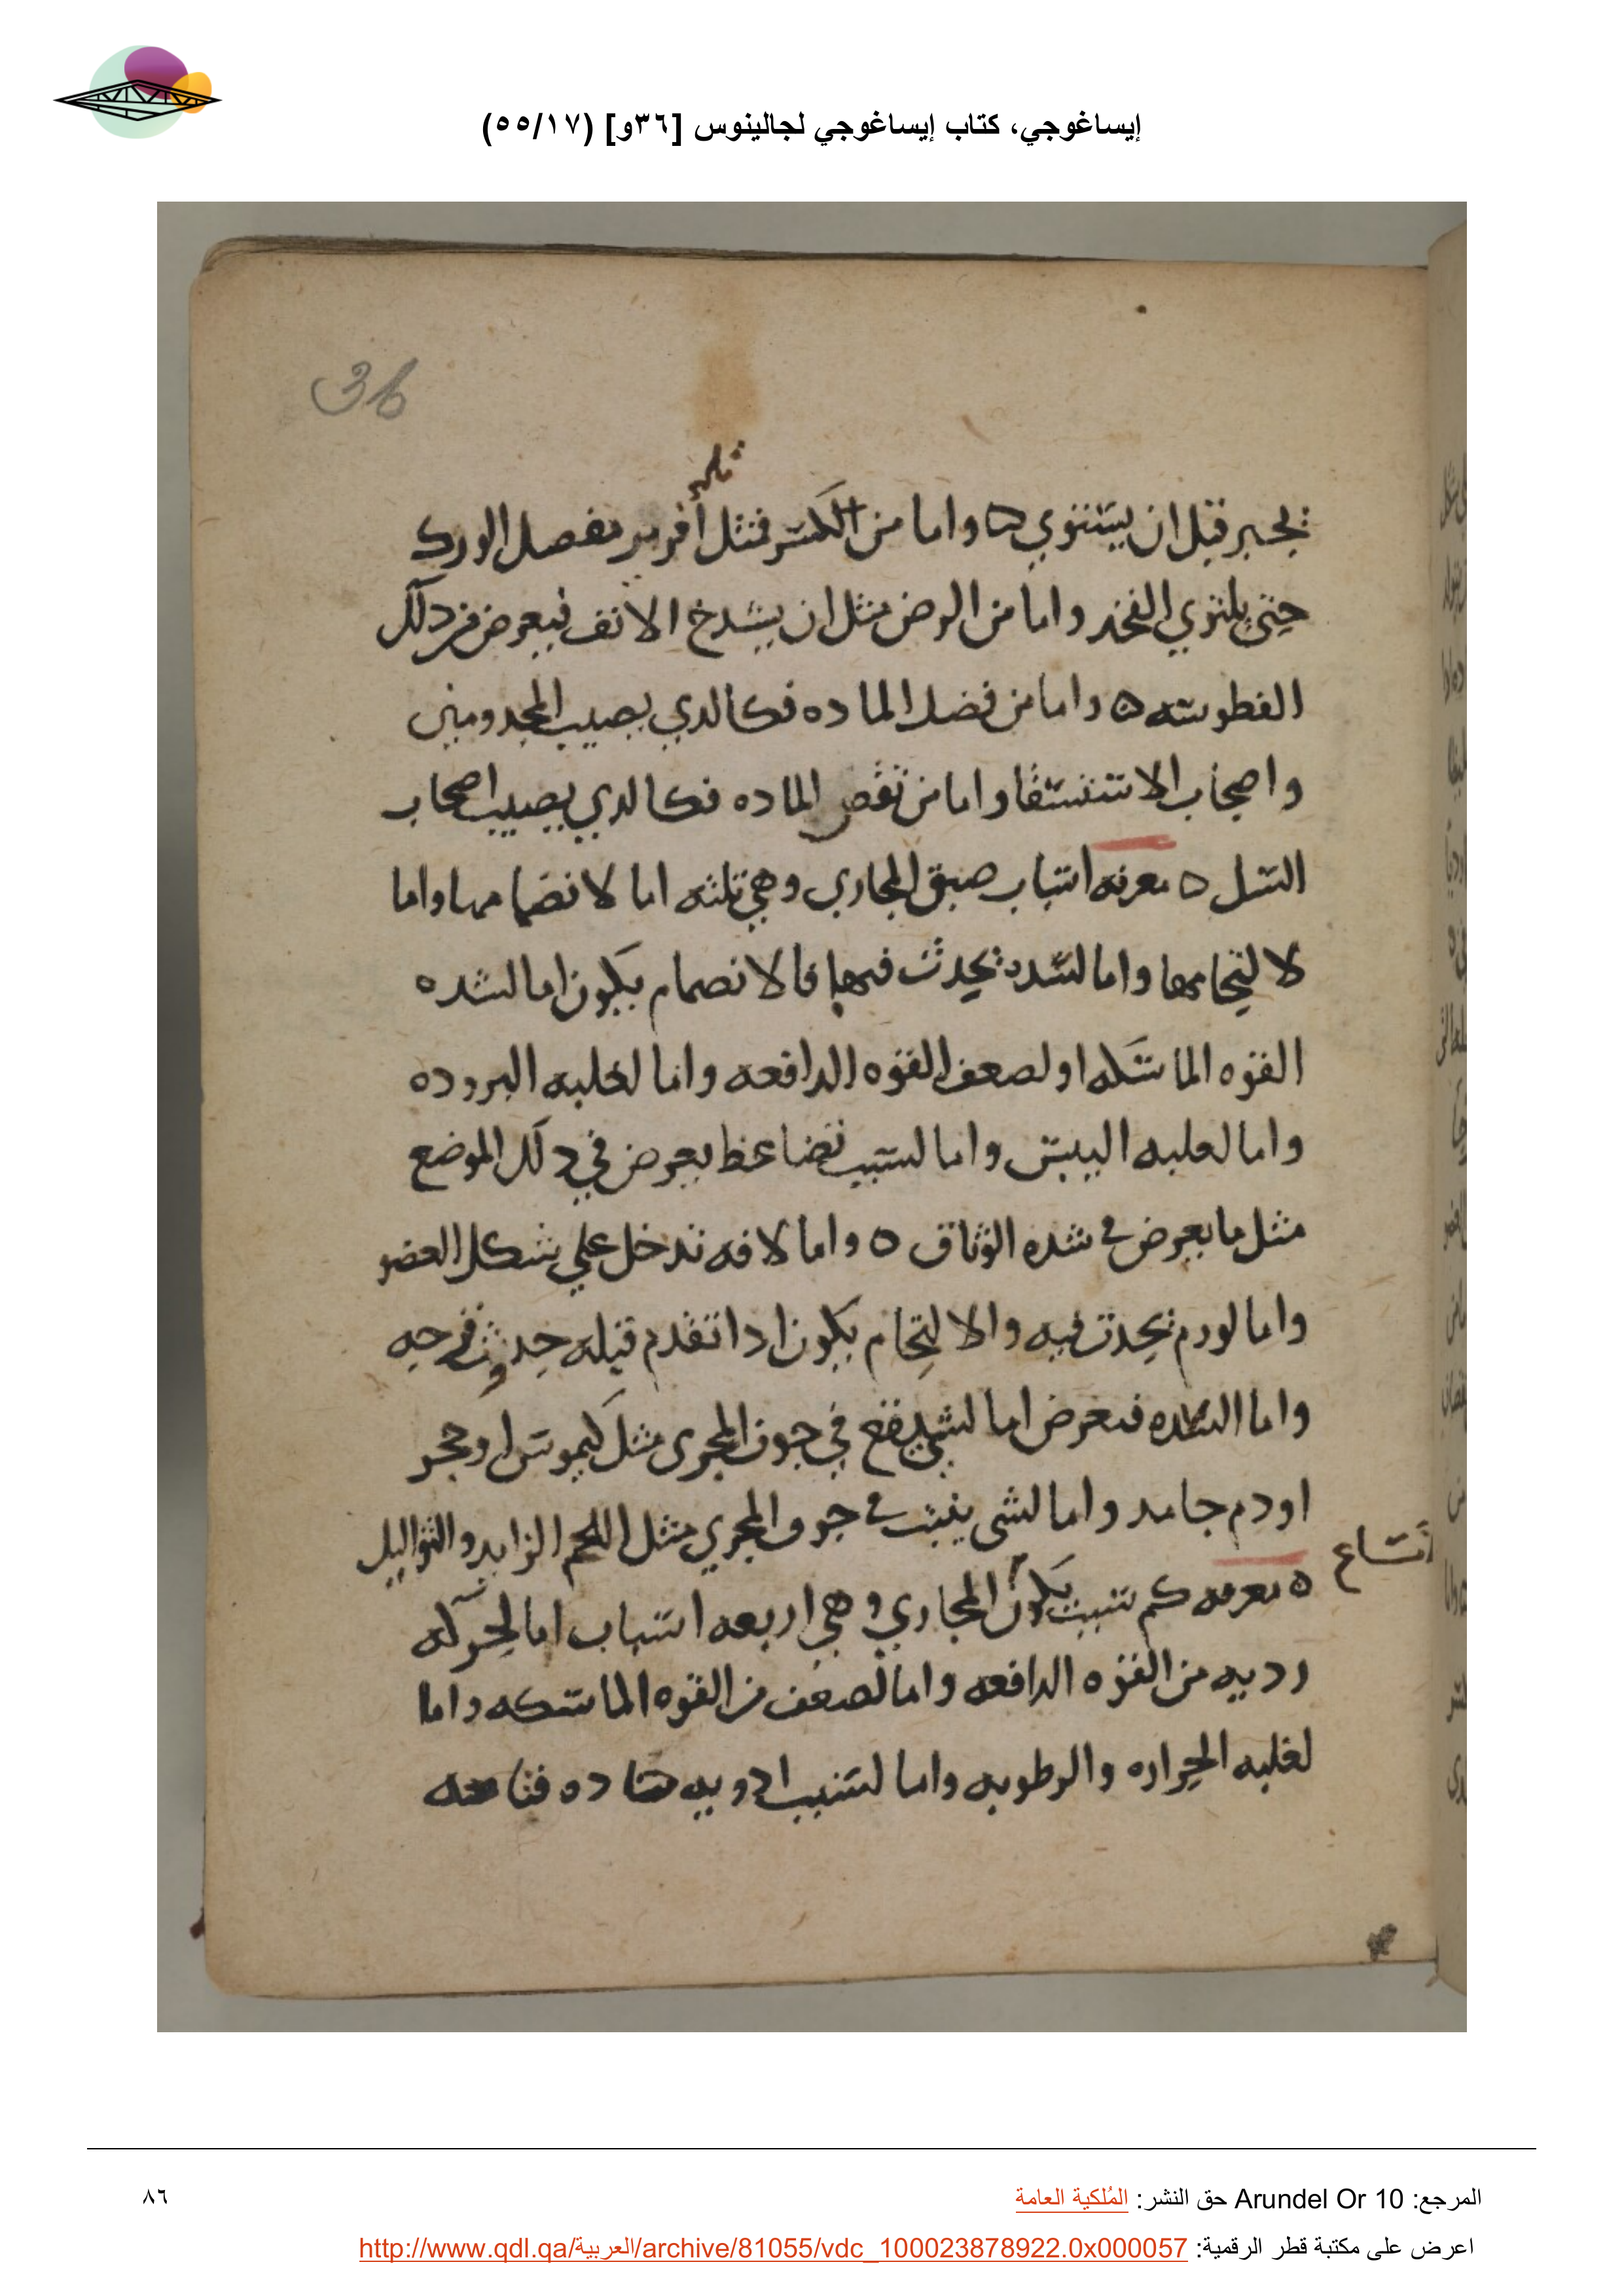 إيساغوجي، كتاب إيساغوجي لجالينوس [٣٦و] (٥٥/١٧)
36
ثلمه
يجبر قبل ان يستوي ه واما من الكسر فمثل أفريز مفصل الورك
حتى يلتوي الفخد واما من الرض مثل ان يشدخ الانف فيعرض من دلك
الفطوسه ه واما من فضل الماده فكالدي يصيب المجدومين
واصحاب الاستسقا واما من نقص الماده فكالدي يصيب اصحاب
السل ه معرفه اسباب ضيق المجاري وهي تلثه اما لانضمامها واما
لالتحامها واما لسدد تحدث فيها فالانضمام يكون اما لشده
القوه الماسكه او لضعف القوه الدافعه واما لغلبه البروده
واما لغلبه اليبس واما لسبب ضاغط يعرض في دلك الموضع
مثل ما يعرض في شده الوثاق ه واما لافه تدخل علي شكل العضو
واما لورم يحدث فيه والالتحام يكون ادا تقدم قبله حدوث قرحه
واما السده فيعرض اما لشي يقع في جوف المجرى مثل كيموس او حجر
او دم جامد واما لشي ينبت في جوف المجري مثل اللحم الزايد والثواليل
اتساع
ه معرفه كم سبب يكون المجاري وهي اربعه اسباب اما لحركه
رديه من القوه الدافعه واما لضعف من القوه الماسكه واما
لغلبه الحراره والرطوبه واما لسبب ادويه حاده فتاحه
المرجع: Arundel Or 10 حق النشر: المُلكية العامة
٨٦
اعرض على مكتبة قطر الرقمية: http://www.qdl.qa/العربية/archive/81055/vdc_100023878922.0x000057